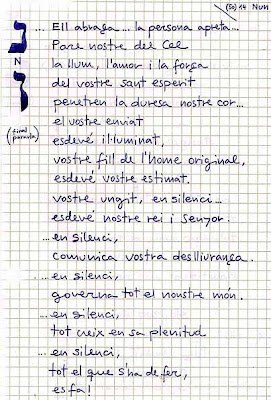 (50) 14 Nun
... Ell abraça ... la persona apreta ...
Pare nostre del Cel
נ
N
la llum, l'amor i la força
del vostre sant esperit
penetren la duresa nostre cor...
ן
el vostre enviat
(final paraula)
esdevé il·luminat,
vostre fill de l'home original,
esdevé vostre estimat.
vostre ungit, en silenci...
esdevé nostre rei i senyor.
... en silenci,
comunica vostra deslliurança.
... en silenci,
governa tot el nonstre món.
... en silenci,
tot creix en sa plenitud
... en silenci,
tot el que s'ha de fer,
es fa!